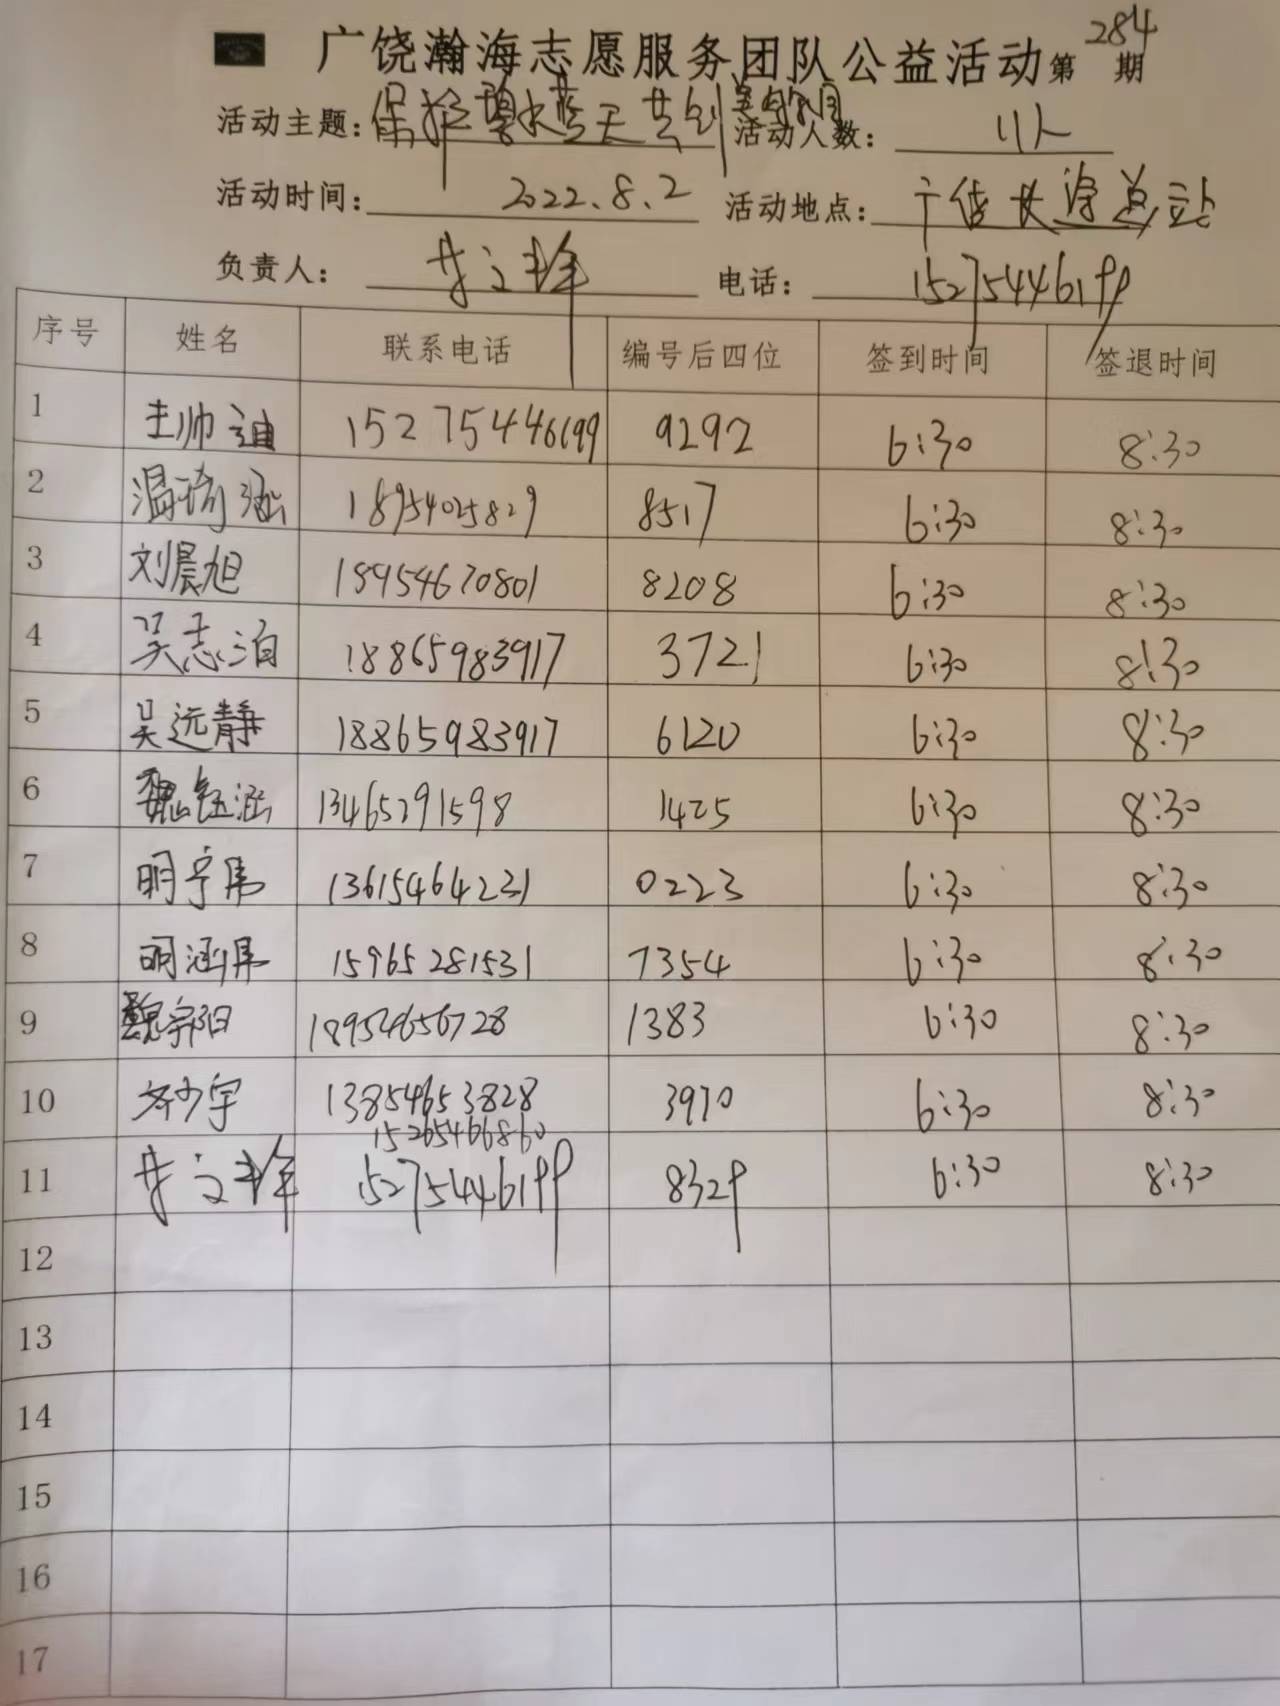 广饶瀚海志愿服务团队公益活动第284期
活动主题: 保护碧水蓝天共创美好家园 活动人数: 11人
活动时间: 2022.8.2 活动地点: 广饶长途总站
负责人: 电话: 15275446199
序号 姓名 联系电话 编号后四位 签到时间 签退时间
1 王帅迪 15275446199 9292 6:30 8:30
2 温琦涵 18954025829 8517 6:30 8:30
3 刘晨旭 18954670801 8208 6:30 8:30
4 吴志泊 18865983917 3721 6:30 8:30
5 吴远静 18865983917 6120 6:30 8:30
6 魏钰涵 13465291598 1425 6:30 8:30
7 明宁伟 13615464231 0223 6:30 8:30
8 明涵伟 15965281531 7354 6:30 8:30
9 魏宗阳 18954656728 1383 6:30 8:30
10 少宇 13854653828 3970 6:30 8:30
15265466860
11 15275446199 8329 6:30 8:30
12
13
14
15
16
17